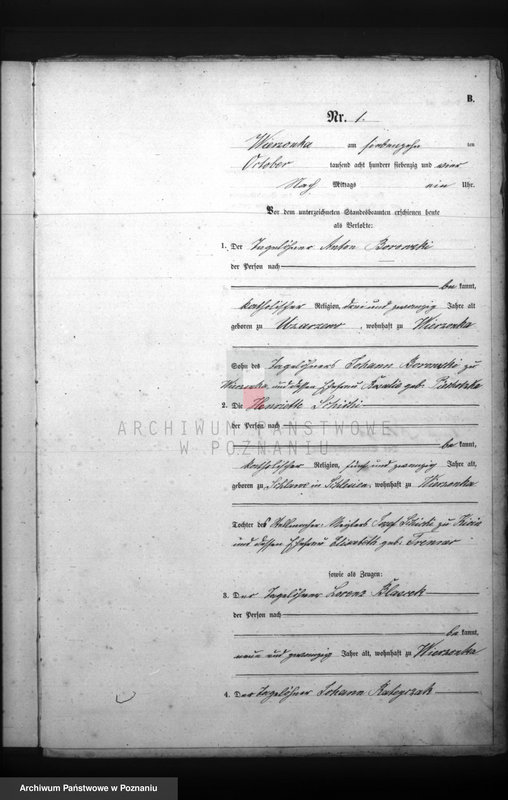 B.
Nr. 1.
Wierzonka am siebenzehn ten
October tausend acht hundert siebenzig und vier
Nach Mittags ein Uhr.
Vor dem unterzeichneten Standesbeamten erschienen heute
als Verlobte:
1. Der Tagelöhner Anton Borowski
der Person nach
be kannt,
katholischer Religion, drei und zwanzig Jahre alt
geboren zu Uzarzewo, wohnhaft zu Wierzonka
Sohn des Tagelöhners Johann Borowski zu
Wierzonka und dessen Ehefrau geb.
2. Die Henriette
ARCHIWUM PAŃSTWOWE
W POZNANIU
der Person nach
be kannt,
katholischer Religion, fünf und zwanzig Jahre alt,
geboren zu in Schlesien, wohnhaft zu Wierzonka
Tochter des Stellmacher zu
und dessen Ehefrau Elisabeth geb.
sowie als Zeugen:
3. Der Tagelöhner Lorenz
der Person nach
be kannt,
neun und zwanzig Jahre alt, wohnhaft zu Wierzonka
4. Der Tagelöhner Johann
Archiwum Państwowe w Poznaniu